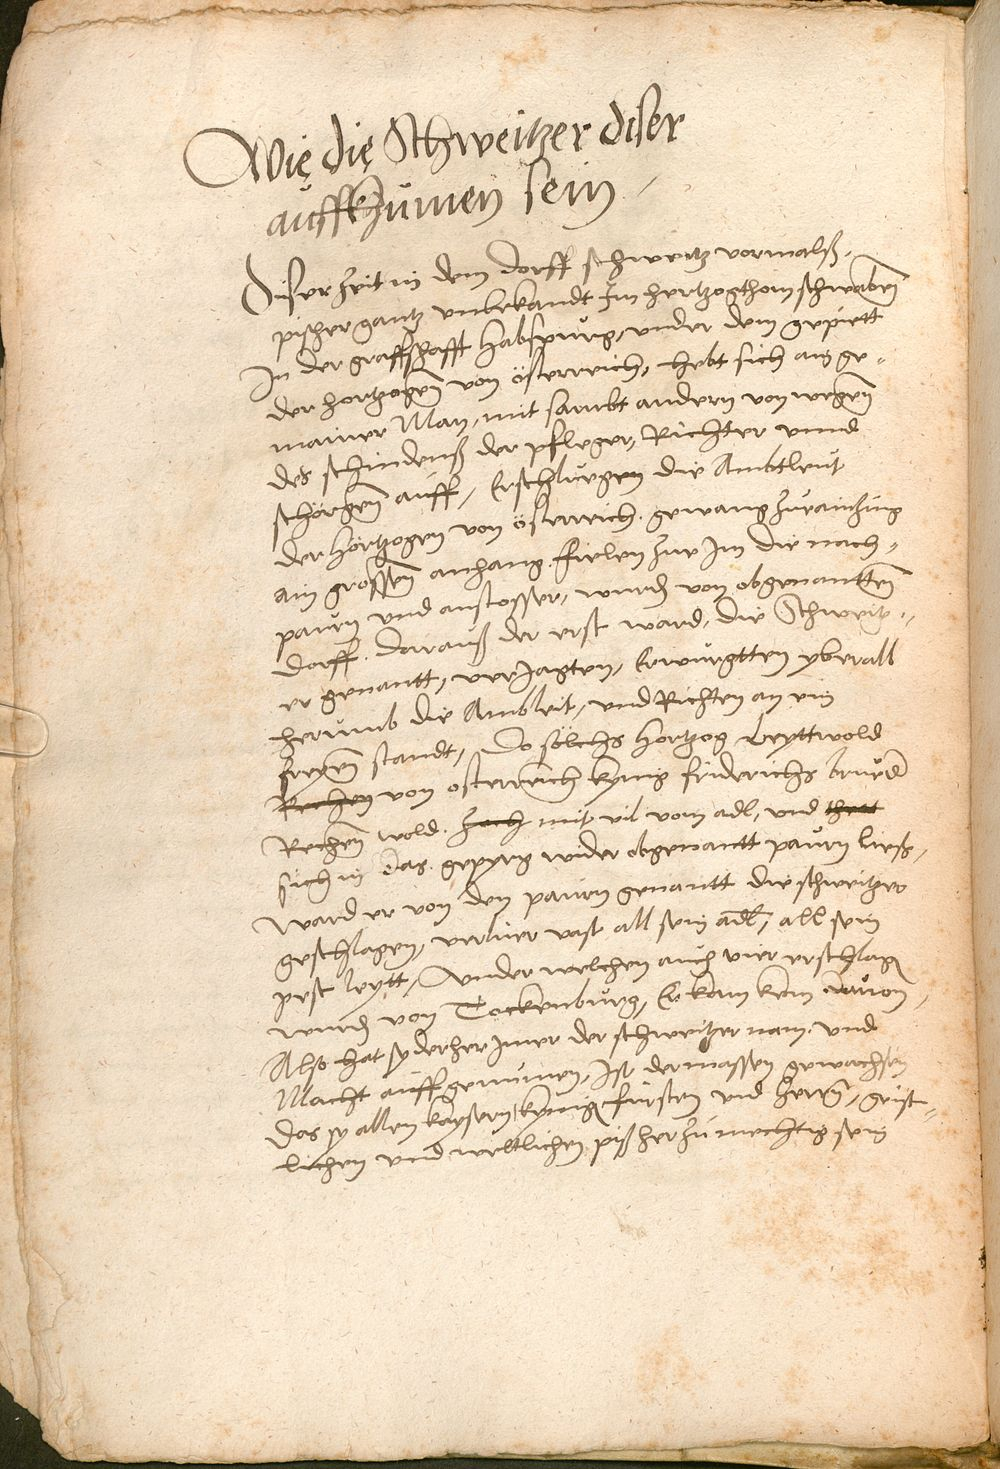 Wie die Schweitzer diser
auffkhumen sein /
Diser zeit in dem dorff schweitz vormalß,
pisher gantz unbekandt Im hertzogthom schwaben
In der graffschafft Habspurg, under dem gepiett
der hortzogen von österreich, hebt sich ain ge-
mainer Man, mit sambt andern von wegen
des schindenß der pfleger, Richter unnd
schörgen auff, Erschluegen die Ambtleut
der Hörtzogen von österreich. gewang
ain grossen anhang. fielen zue Im die nach-
paurn und anstosser, wurden von obgenantten
dorff. darauß der erst ward, die Schweitz-
er genantt, verJagten, Erwurgtten yberall
herumb die Ambleit, und Richten an ein
freyen standt, Do solchs Hortzog Leyttwold
Rechen von osterreich kynig friderichs brueder
Rechen wold. mit vil vom adl, und thett
sich in das gepyrg wider obgenantt paurn ließ,
Ward er von den paurn genantt die schweitzer
geschlagen, verliert vast all sein adl, all sein
pest leytt, Under welchen auch vier erschlagen
wurden von Tockenburg, Er kam kein davon,
Also hat sy derher Jmer der schweitzer nam. und
Macht auff genumen, Ist dermassen gewachsen
das sy allen kaysern, kynigen fursten und herren, geist-
lichen und weltlichen, pißher zu mechtig sein